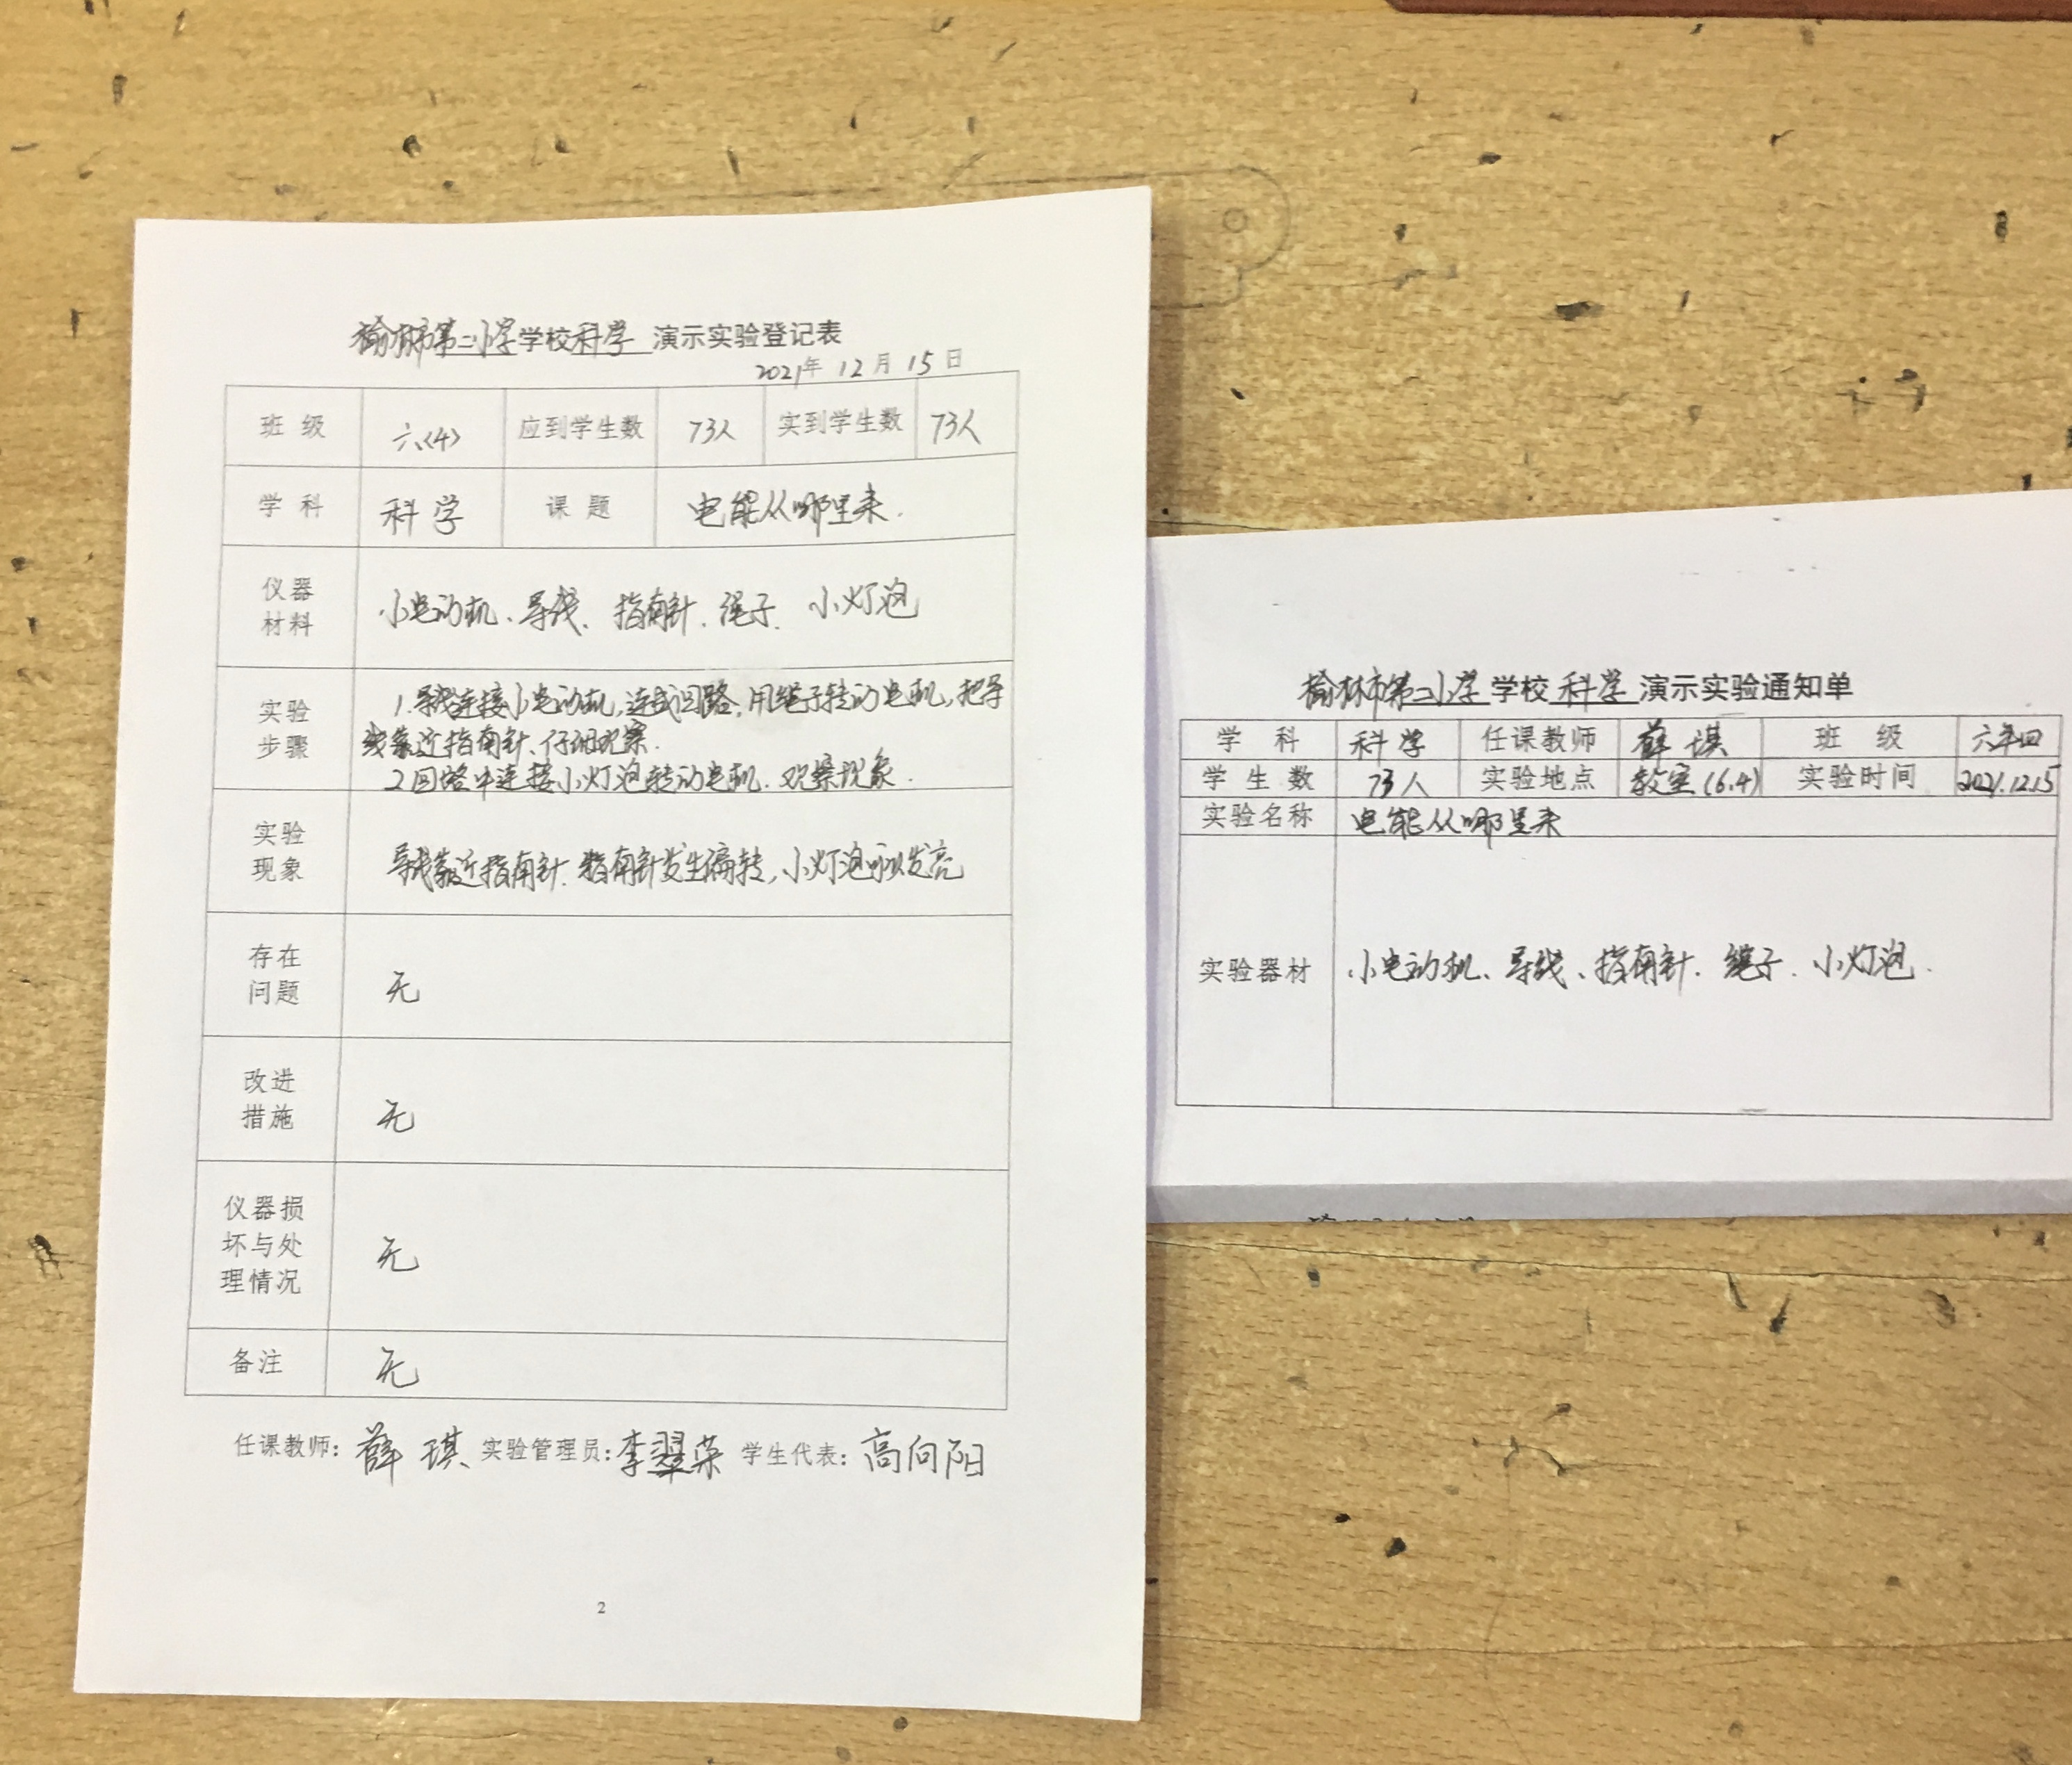 榆林市第二小学学校科学 演示实验登记表
2021年 12月 15日
班 级 六(4) 应到学生数 73人 实到学生数 73人
学 科 科学 课 题 电能从哪里来.
仪器
材料
小电动机、导线、指南针、绳子、小灯泡
实验
步骤
1.导线连接小电动机,连成回路,用绳子转动电机,把导
线靠近指南针、仔细观察.
2.回路中连接小灯泡转动电机.观察现象.
实验
现象
导线靠近指南针.指南针发生偏转,小灯泡可以发亮
存在
问题
无
改进
措施
无
仪器损
坏与处
理情况
无
备注 无
任课教师: 薛 琪 实验管理员: 李翠荣 学生代表: 高向阳
2
榆林市第二小学学校 科学 演示实验通知单
学 科 科学 任课教师 薛 琪 班 级 六年四
学 生 数 73人 实验地点 教室(6.4) 实验时间 2021.12.15
实验名称 电能从哪里来
实验器材 小电动机、导线、指南针、绳子、小灯泡.